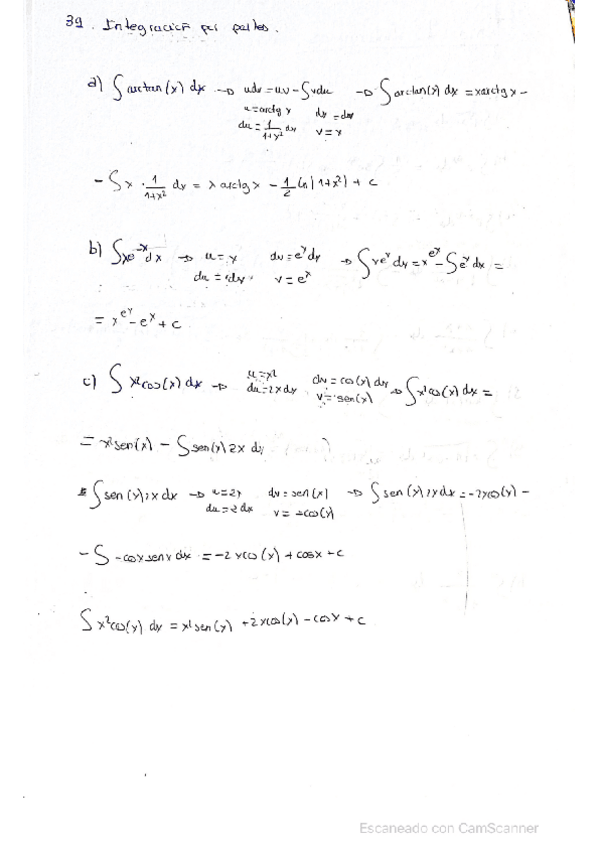 39. Integración por partes.
a) ∫ arctan(x) dx → udv = uv - ∫vdu → ∫ arctan(x) dx = xarctg x -
u = arctg x dv = dx
du = 1/(1+x²) dx v = x
- ∫ x · 1/(1+x²) dx = x arctg x - 1/2 ln|1+x²| + c
b) ∫ xe^-x dx → u = x dv = e^x dx → ∫ xe^x dx = x e^x - ∫ e^x dx =
du = dx v = e^x
= x e^x - e^x + c
c) ∫ x² cos(x) dx → u = x² dv = cos(x) dx → ∫ x² cos(x) dx =
du = 2x dx v = sen(x)
= x² sen(x) - ∫ sen(x) 2x dx
∫ sen(x) 2x dx → u = 2x dv = sen(x) → ∫ sen(x) 2x dx = -2xcos(x) -
du = 2 dx v = -cos(x)
- ∫ -cosx senx dx = -2xcos(x) + cosx + c
∫ x² cos(x) dx = x² sen(x) + 2xcos(x) - cosx + c
Escaneado con CamScanner